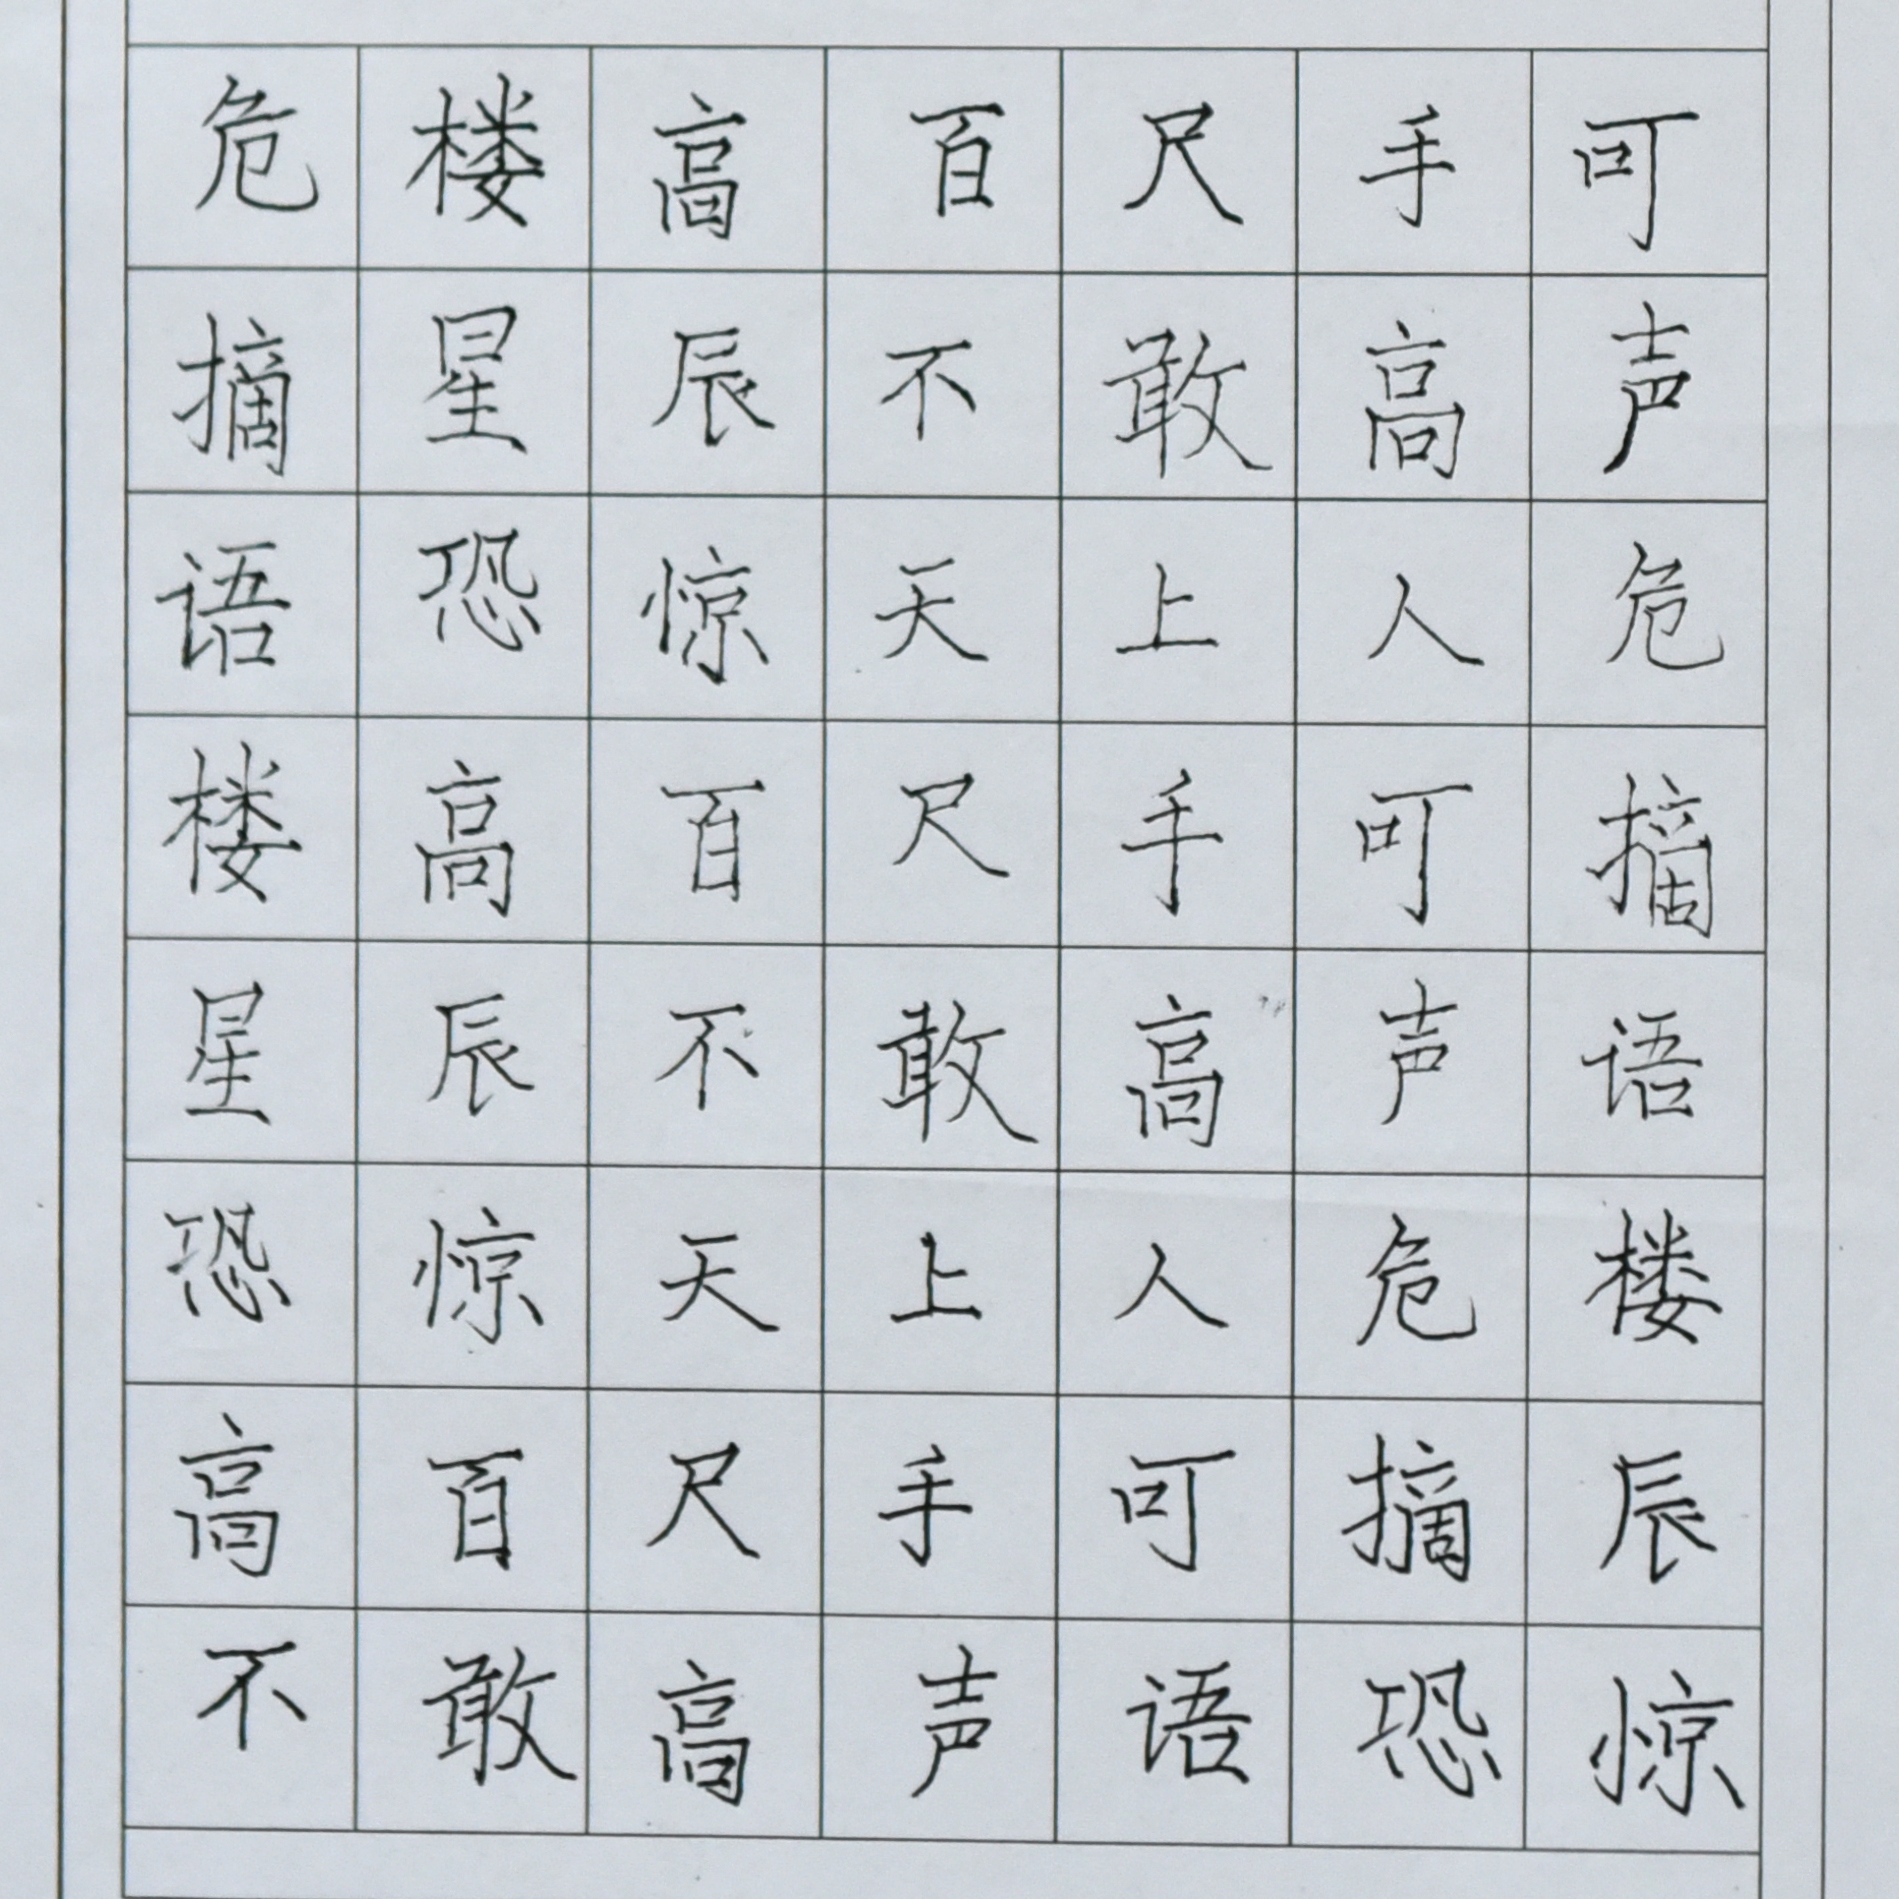 危楼高百尺手可
摘星辰不敢高声
语恐惊天上人危
楼高百尺手可摘
星辰不敢高声语
恐惊天上人危楼
高百尺手可摘辰
不敢高声语恐惊